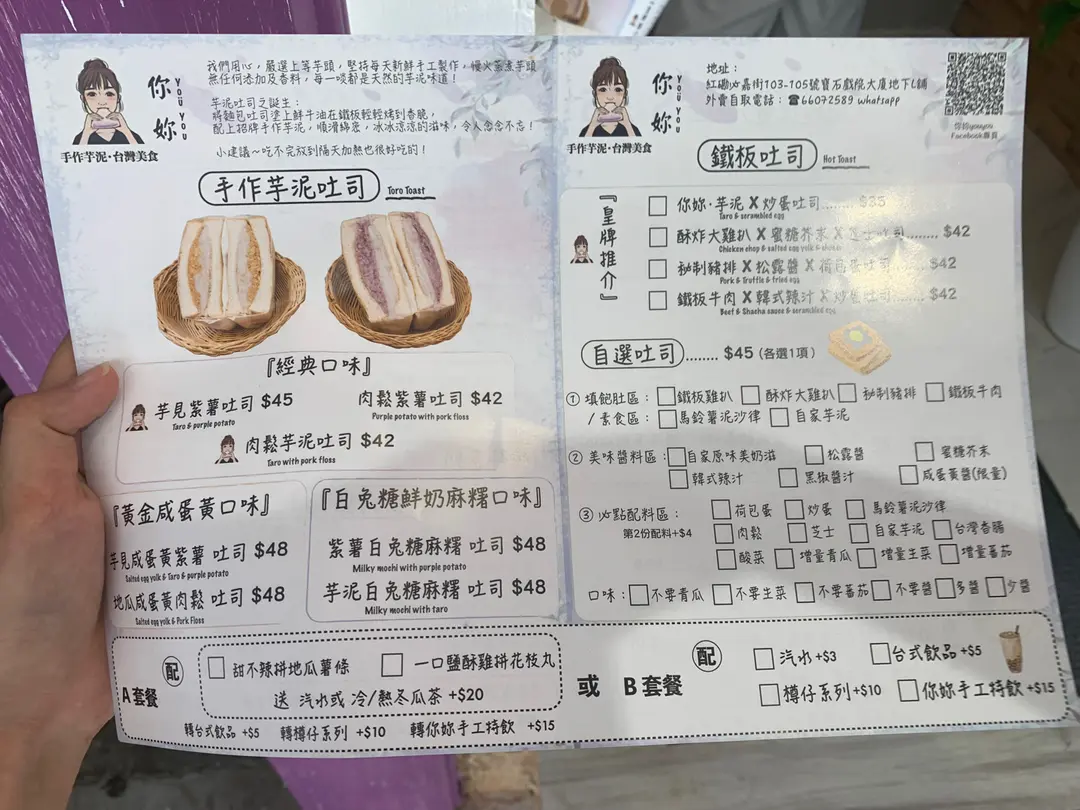 你妳
YOU YOU
手作芋泥·台灣美食
我們用心，嚴選上等芋頭，堅持每天新鮮手工製作，慢火蒸煮芋頭
無任何添加及香料，每一啖都是天然的芋泥味道！
芋泥吐司之誕生：
將麵包吐司塗上鮮牛油在鐵板輕輕烤到香脆，
配上招牌手作芋泥，順滑綿密，冰冰涼涼的滋味，令人念念不忘！
小建議～吃不完放到隔天加熱也很好吃的！
手作芋泥吐司 Toro Toast
『經典口味』
芋見紫薯吐司 $45
Taro & purple potato
肉鬆紫薯吐司 $42
Purple potato with pork floss
肉鬆芋泥吐司 $42
Taro with pork floss
『黃金咸蛋黃口味』
芋見咸蛋黃紫薯 吐司 $48
Salted egg yolk & Taro & purple potato
地瓜咸蛋黃肉鬆 吐司 $48
Salted egg yolk & Pork Floss
『白兔糖鮮奶麻糬口味』
紫薯白兔糖麻糬 吐司 $48
Milky mochi with purple potato
芋泥白兔糖麻糬 吐司 $48
Milky mochi with taro
你妳
YOU YOU
手作芋泥·台灣美食
地址：
紅磡必嘉街103-105號寶石戲院大廈地下L舖
外賣自取電話：☎66072589 whatsapp
你妳youyou
Facebook專頁
鐵板吐司 Hot Toast
『皇牌推介』
你妳·芋泥 X 炒蛋吐司........ $35
Taro & scrambled egg
酥炸大雞扒 X 蜜糖芥末 X 芝士吐司........ $42
Chicken chop & salted egg yolk &
秘制豬排 X 松露醬 X 荷包蛋吐司........ $42
Pork & Truffle & fried egg
鐵板牛肉 X 韓式辣汁 X 炒蛋吐司........ $42
Beef & Shacha sauce & scrambled egg
自選吐司........ $45 (各選1項)
① 填飽肚區： 鐵板雞扒 酥炸大雞扒 秘制豬排 鐵板牛肉
/ 素食區： 馬鈴薯泥沙律 自家芋泥
② 美味醬料區： 自家原味美奶滋 松露醬 蜜糖芥末
韓式辣汁 黑椒醬汁 咸蛋黃醬(限量)
③ 必點配料區： 荷包蛋 炒蛋 馬鈴薯泥沙律
第2份配料+$4 肉鬆 芝士 自家芋泥 台灣香腸
酸菜 增量青瓜 增量生菜 增量蕃茄
口味： 不要青瓜 不要生菜 不要蕃茄 不要醬 多醬 少醬
A套餐 配
甜不辣拼地瓜薯條 一口鹽酥雞拼花枝丸
送 汽水或 冷/熱冬瓜茶 +$20
轉台式飲品 +$5 轉樽仔系列 +$10 轉你妳手工特飲 +$15
或 B套餐 配
汽水 +$3 台式飲品 +$5
樽仔系列 +$10 你妳手工特飲 +$15